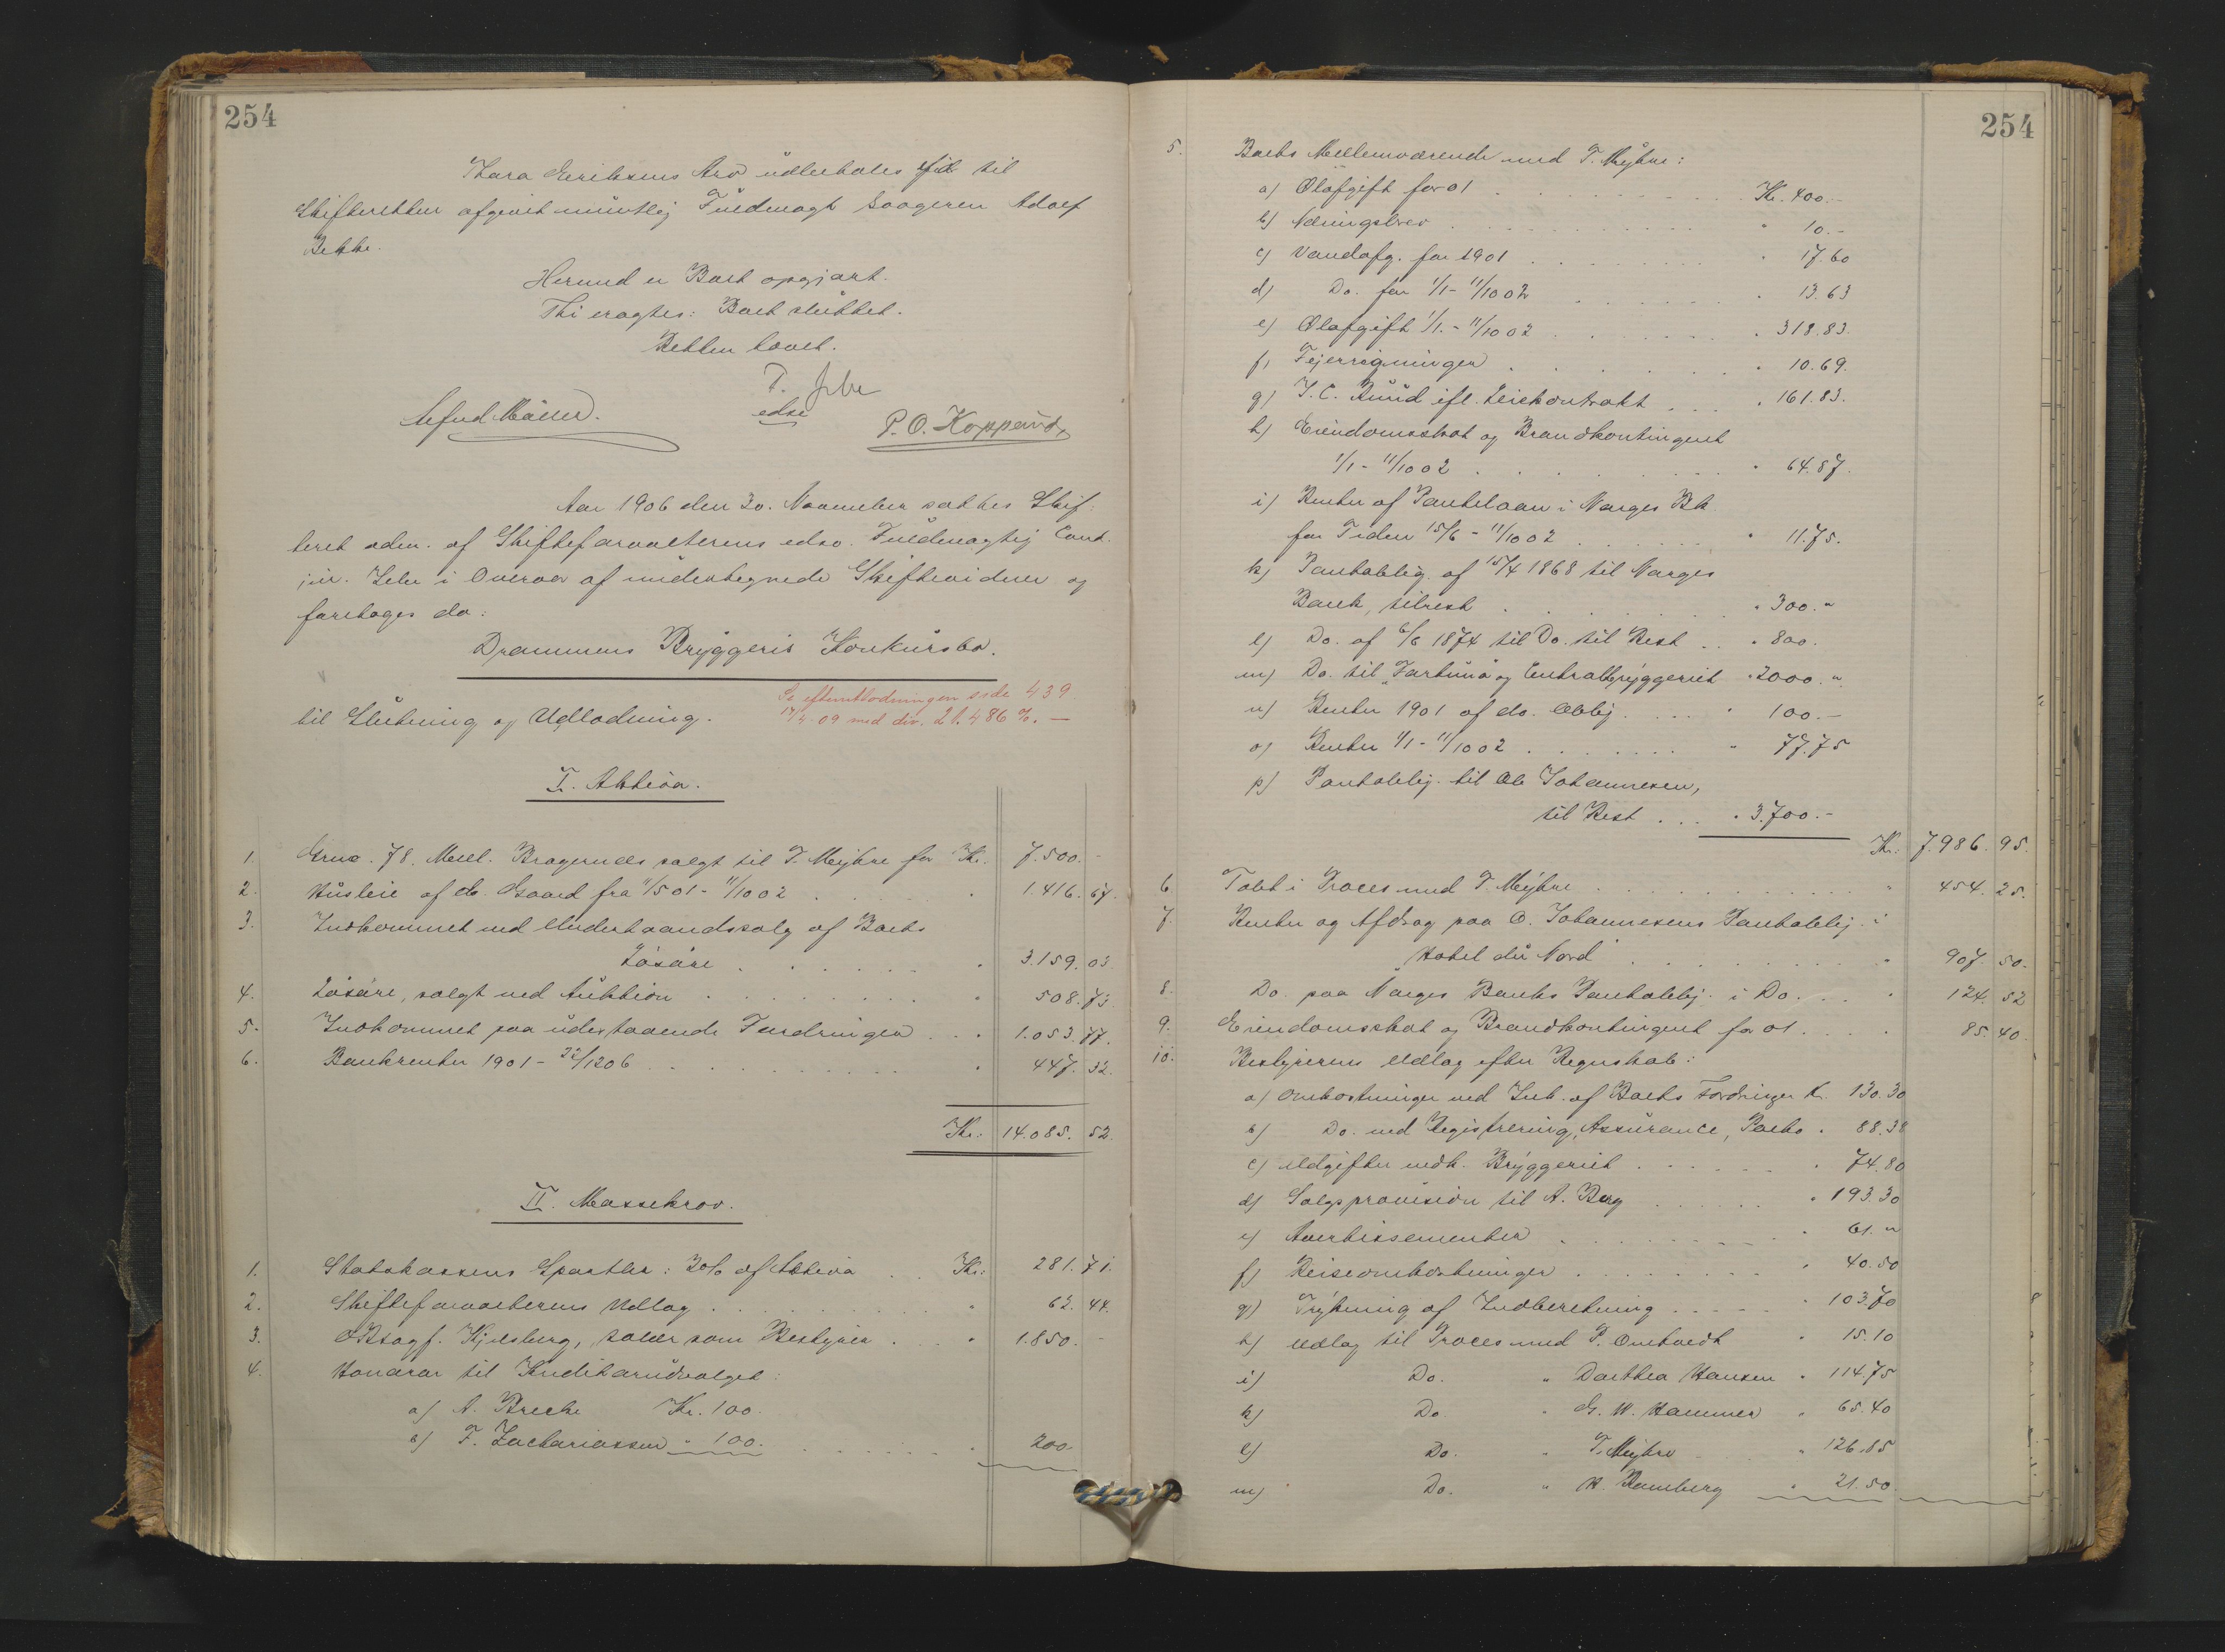 254
Thora Eeriksens Arv udbetales ifølge til
Skifteretten afgivet mundtlig Fuldmagt Sagfører Adolf
Bekke.
Hermed er Boet opgjort.
Thi eragtes: Boet sluttet.
Retten hævet.
edsv
P. O. Kopperud
Aar 1906 den 30. November sattes Skif-
teret adm. af Skifteforvalterens edsv. Fuldmægtig Cand.
jur. i Overvær af undertegnede Skiftevidner og
foretoges da:
Drammens Bryggeris Konkursbo.
Se efterutlodningen side 439
til Slutning og Udlodning. 17/4.09 med div. 21.486 %. —
I. Aktiva.
1. Grno. 78. Mell. Bragernæs solgt til T. Meyhre for Kr. 7.500. -
2. Husleie af do. Gaard fra 1/5 01 - 11/10 02 . . . " 1.416. 67.
3. Indkommet ved Underhaandssalg af Boets
Løsøre . . . . . " 3.159. 03.
4. Løsøre, solgt ved Auktion . . . . . " 508. 73.
5. Indkommet paa udestaaende Fordringer . . . 1.053. 77.
6. Bankrenter 1901 - 22/12 06 . . . . . " 447. 32.
Kr: 14.085. 52.
II. Massekrav.
1. Statskassens Sportler: 2% af Aktiva . . Kr: 281. 71.
2. Skifteforvalterens Udlæg . . . . . " 62. 44.
3. ORsagf. Kjelsberg, salær som Bestyrer . . . " 1.850. -
4. Honorar til Kreditorudvalget:
a) A. Brecke Kr. 100.
b) F. Zachariassen " 100. . . . . . " 200.
254
5. Boets Mellemværende med T. Meyhre:
a) Ølafgift for 01 . . . . . Kr. 400.-
b) Næringsbrev . . . . . " 10.-
c) Vandafg. for 1901 . . . . . " 17.60
d) Do. for 1/1 - 11/10 02 . . . . . " 13.63
e) Ølafgift 1/1. - 11/10 02 . . . . . " 318.83.
f) Fejerregninger . . . . . " 10.69.
g) I. C. Ruud ifl. Leiekontrakt . . . " 161.83.
h) Eiendomsskat og Brandkontingent
1/1 - 11/10 02 . . . . . " 64.87.
i) Renter af Pantelaan i Norges Bk
for Tiden 15/6 - 11/10 02 . . . . . " 11.75.
k) Pantoblig. af 15/4 1868 til Norges
Bank, tilrest . . . . . " 300. "
l) Do. af 6/6 1874 til Do. til Rest . . " 800.
m) Do. til "Fortuna" og Centralbryggeriet " 2000. "
n) Renter 1901 af do. Oblig. . . . . " 100.—
o) Renter 1/1 - 11/10 02 . . . . . " 77.75
p) Pantoblig. til Ole Johannesen,
til Rest . . . " 3.700.-
Kr: 7.986. 95.
6. Tabt i Proces med T. Meyhre . . . . . " 454. 25.
7. Renter og Afdrag paa O. Johannesens Pantoblig. i
"Hotel du Nord" . . . . . " 907. 50.
8. Do. paa Norges Banks Pantoblig. i Do. . . . " 124. 52
9. Eiendomsskat og Brandkontingent for 01. . . . " 85. 40.
10. Bestyrerens Udlæg efter Regnskab:
a) Omkostninger ved Ink. af Boets Fordringer Kr. 130.30
b) Do. ved Registrering, Assurance, Porto . 88.38
c) Udgifter vedk. Bryggeriet . . . . . " 74.80
d) Salgsprovision til A. Berg . . . . . " 193.30
e) Avertissementer . . . . . " 61. "
f) Reiseomkostninger . . . . . " 40.50
g) Trykning af Indberetning . . . . . " 103.70
h) Udlæg til Proces med P. Omholdt " 15.10
i) Do. " Dorthea Hansen " 114.75
k) Do " G. W. Hammer " 65.40
l) Do. " T. Meyhre " 126.85
m) Do. " H. Ramberg " 21.50